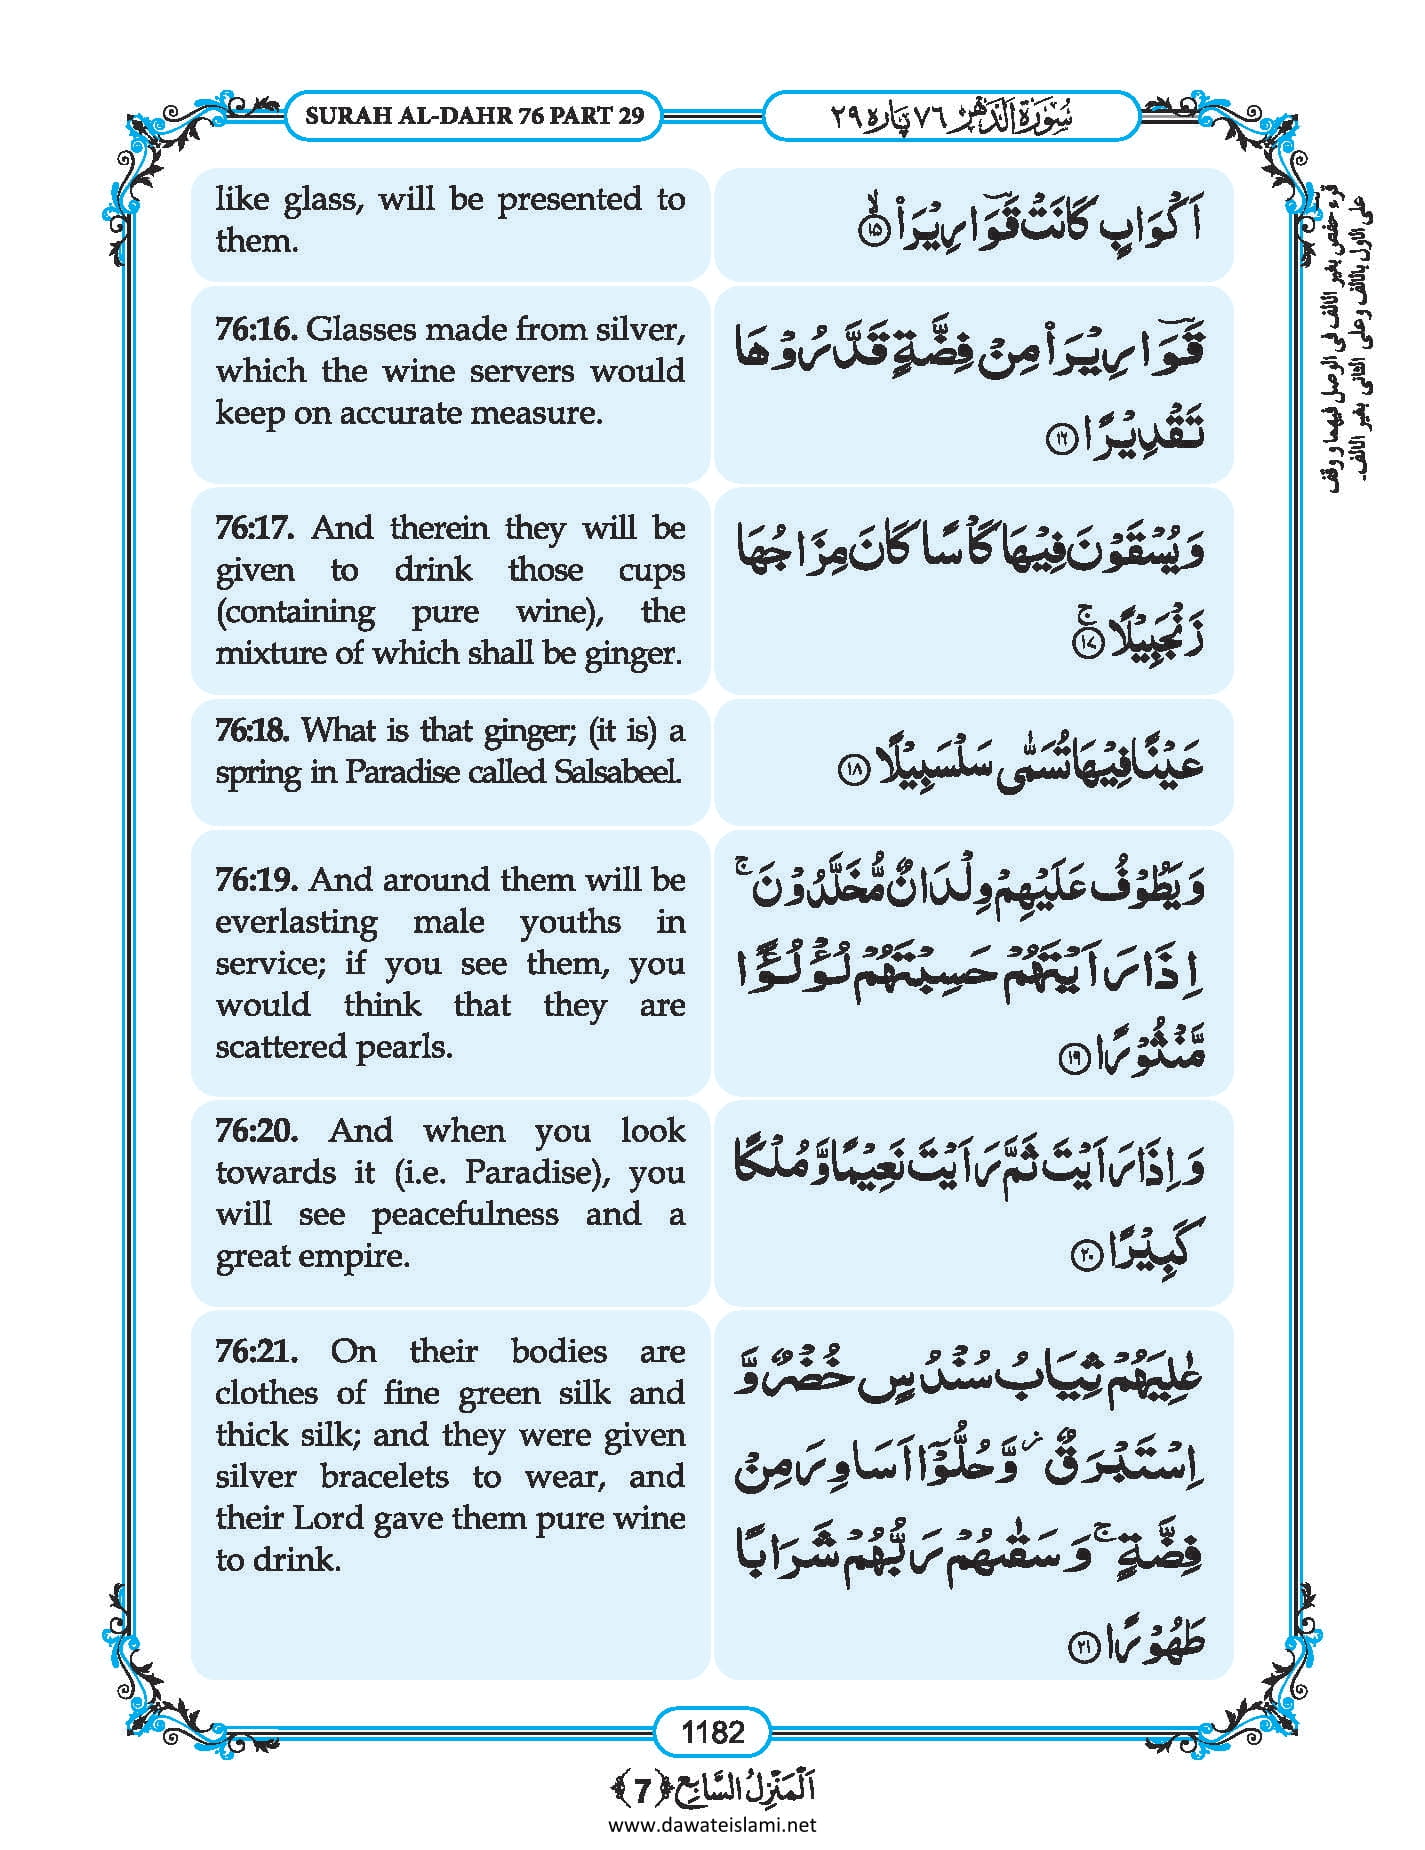 SURAH AL-DAHR 76 PART 29
سُوْرَۃُ الدَّهْر ٧٦ پاره ٢٩
like glass, will be presented to
them.
اَكْوَابٍ كَانَتْ قَوَّا۠رِيْرَا۟ ۙ﴿۱۵﴾
76:16. Glasses made from silver,
which the wine servers would
keep on accurate measure.
قَوَّا۠رِيْرَا۟ مِنْ فِضَّةٍ قَدَّرُوْهَا
تَقْدِيْرًا ﴿۱۶﴾
76:17. And therein they will be
given to drink those cups
(containing pure wine), the
mixture of which shall be ginger.
وَ يُسْقَوْنَ فِيْهَا كَاْسًا كَانَ مِزَاجُهَا
زَنْجَبِيْلًا ۚ﴿۱۷﴾
76:18. What is that ginger; (it is) a
spring in Paradise called Salsabeel.
عَيْنًا فِيْهَا تُسَمّٰى سَلْسَبِيْلًا ﴿۱۸﴾
76:19. And around them will be
everlasting male youths in
service; if you see them, you
would think that they are
scattered pearls.
وَ يَطُوْفُ عَلَيْهِمْ وِلْدَانٌ مُّخَلَّدُوْنَ ۚ
اِذَا رَاَيْتَهُمْ حَسِبْتَهُمْ لُؤْلُؤًا
مَّنْثُوْرًا ﴿۱۹﴾
76:20. And when you look
towards it (i.e. Paradise), you
will see peacefulness and a
great empire.
وَ اِذَا رَاَيْتَ ثَمَّ رَاَيْتَ نَعِيْمًا وَّ مُلْكًا
كَبِيْرًا ﴿۲۰﴾
76:21. On their bodies are
clothes of fine green silk and
thick silk; and they were given
silver bracelets to wear, and
their Lord gave them pure wine
to drink.
عٰلِيَهُمْ ثِيَابُ سُنْدُسٍ خُضْرٌ وَّ
اِسْتَبْرَقٌ ؗ وَّ حُلُّوْۤا اَسَاوِرَ مِنْ
فِضَّةٍ ۚ وَ سَقٰىهُمْ رَبُّهُمْ شَرَابًا
طَهُوْرًا ﴿۲۱﴾
قرء حفص بغير الالف فى الوصل فيهما و وقف
على الاول بالالف وعلى الثانى بغير الالف۔
1182
اَلْمَنْزِلُ السَّابِع ﴿7﴾
www.dawateislami.net